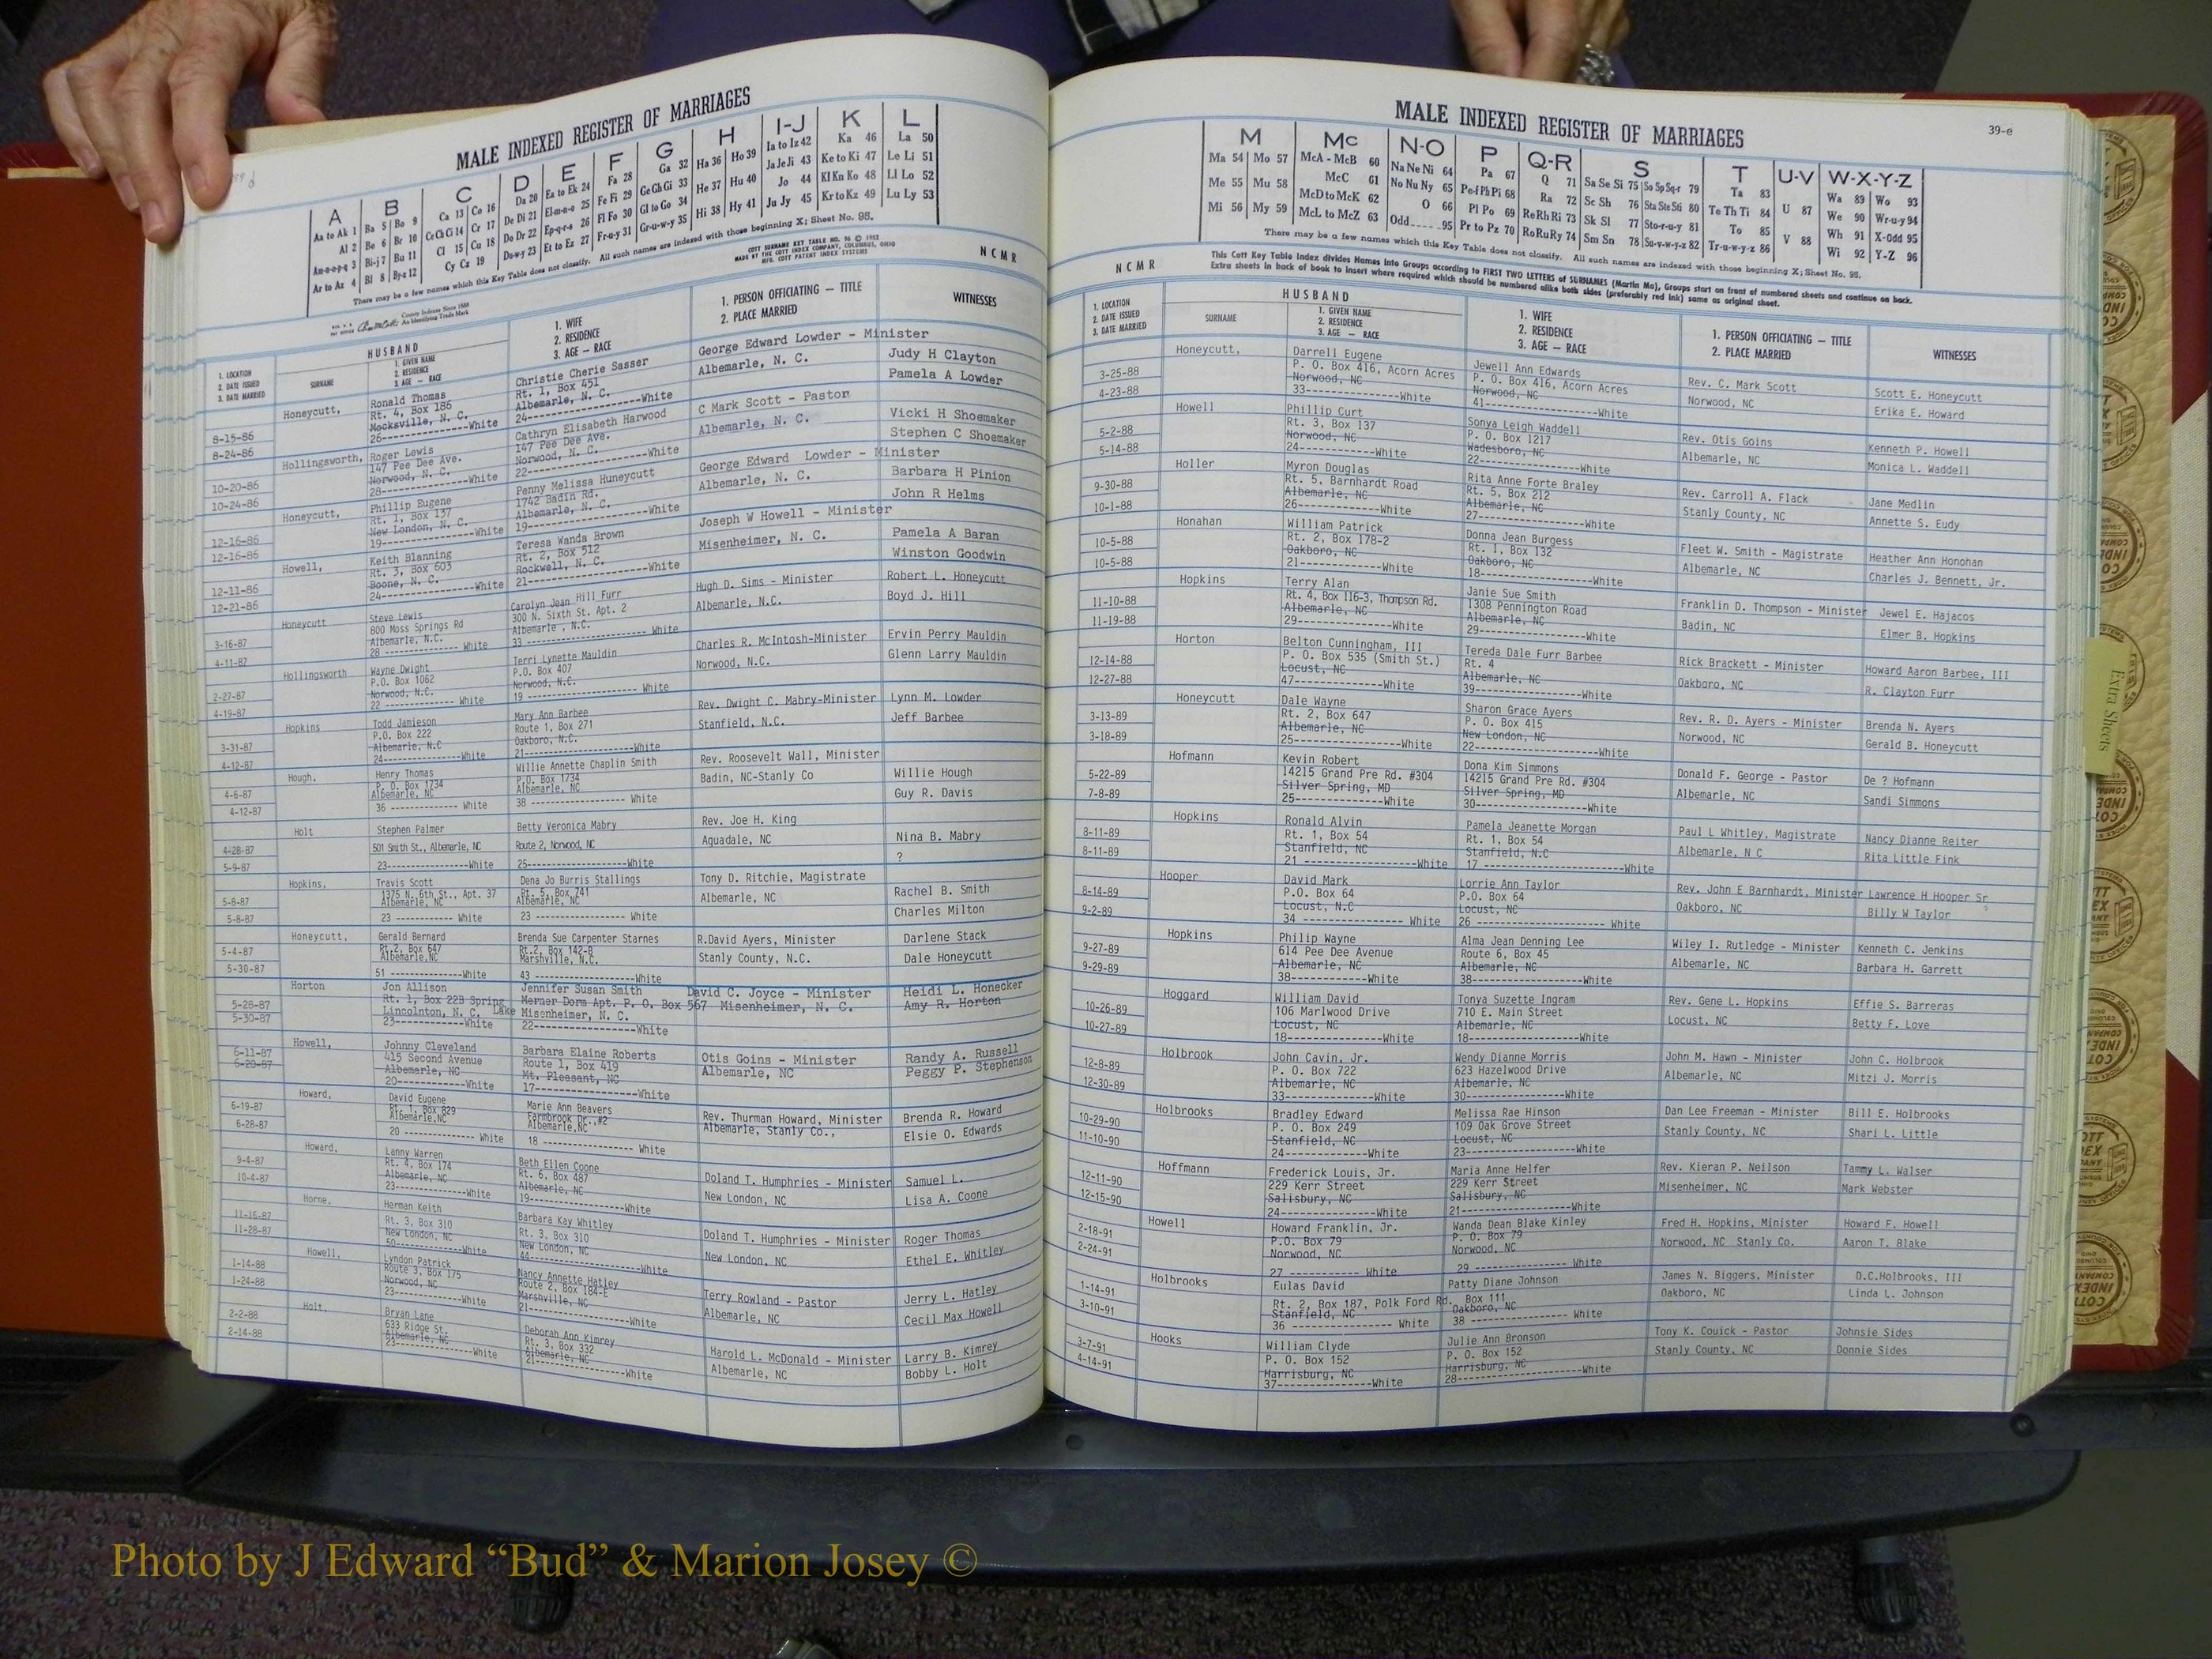 MALE INDEXED REGISTER OF MARRIAGES
A
Aa to Ak 1
Al 2
Am-n-o-p-q 3
Ar to Az 4
B
Ba 5 Bo 9
Be 6 Br 10
Bi-j 7 Bu 11
Bl 8 By-z 12
C
Ca 13 Co 16
Ce Ch Ci 14 Cr 17
Cl 15 Cu 18
Cy Cz 19
D
Da 20
De Di 21
Do Dr 22
Du-w-y 23
E
Ea to Ek 24
El-m-n-o 25
Ep-q-r-s 26
Et to Ez 27
F
Fa 28
Fe Fi 29
Fl Fo 30
Fr-u-y 31
G
Ga 32
Ge Gh Gi 33
Gl to Go 34
Gr-u-w-y 35
H
Ha 36 Ho 39
He 37 Hu 40
Hi 38 Hy 41
I-J
Ia to Iz 42
Ja Je Ji 43
Jo 44
Ju Jy 45
K
Ka 46
Ke to Ki 47
Kl Kn Ko 48
Kr to Kz 49
L
La 50
Le Li 51
Ll Lo 52
Lu Ly 53
There may be a few names which this Key Table does not classify. All such names are indexed with those beginning X; Sheet No. 95.
COTT SURNAME KEY TABLE NO. 96 © 1952
MADE BY THE COTT INDEX COMPANY, COLUMBUS, OHIO
MFG. COTT PATENT INDEX SYSTEMS
County Indexes Since 1888
An Identifying Trade Mark
NCMR
1. LOCATION
2. DATE ISSUED
3. DATE MARRIED
HUSBAND
SURNAME
1. GIVEN NAME
2. RESIDENCE
3. AGE — RACE
1. WIFE
2. RESIDENCE
3. AGE — RACE
1. PERSON OFFICIATING — TITLE
2. PLACE MARRIED
WITNESSES
Honeycutt, Ronald Thomas Christie Cherie Sasser George Edward Lowder - Minister
Rt. 4, Box 186 Rt. 1, Box 451 Albemarle, N. C. Judy H Clayton
Mocksville, N. C. Albemarle, N. C. Pamela A Lowder
8-15-86 26---White 24---White
8-24-86
Hollingsworth, Roger Lewis Cathryn Elisabeth Harwood C Mark Scott - Pastor
147 Pee Dee Ave. 147 Pee Dee Ave. Albemarle, N. C. Vicki H Shoemaker
Norwood, N. C. Norwood, N. C. Stephen C Shoemaker
10-20-86 28---White 22---White
10-24-86
Honeycutt, Phillip Eugene Penny Melissa Huneycutt George Edward Lowder - Minister
Rt. 1, Box 137 1742 Badin Rd. Albemarle, N. C. Barbara H Pinion
New London, N. C. Albemarle, N. C. John R Helms
12-16-86 19---White 19---White
12-16-86
Howell, Keith Blanning Teresa Wanda Brown Joseph W Howell - Minister
Rt. 3, Box 603 Rt. 2, Box 512 Misenheimer, N. C. Pamela A Baran
Boone, N. C. Rockwell, N. C. Winston Goodwin
12-11-86 24---White 21---White
12-21-86
Honeycutt Steve Lewis Carolyn Jean Hill Furr Hugh D. Sims - Minister Robert L. Honeycutt
800 Moss Springs Rd 300 N. Sixth St. Apt. 2 Albemarle, N.C. Boyd J. Hill
Albemarle, N.C. Albemarle , N.C.
3-16-87 28 --- White 33 --- White
4-11-87
Hollingsworth Wayne Dwight Terri Lynette Mauldin Charles R. McIntosh-Minister Ervin Perry Mauldin
P.O. Box 1062 P.O. Box 407 Norwood, N.C. Glenn Larry Mauldin
Norwood, N.C. Norwood, N.C.
2-27-87 22 --- White 19 --- White
4-19-87
Hopkins Todd Jamieson Mary Ann Barbee Rev. Dwight C. Mabry-Minister Lynn M. Lowder
P.O. Box 222 Route 1, Box 271 Stanfield, N.C. Jeff Barbee
Albemarle, N.C Oakboro, N.C.
3-31-87 24---White 21---White
4-12-87
Hough, Henry Thomas Willie Annette Chaplin Smith Rev. Roosevelt Wall, Minister
P. O. Box 1734 P.O. Box 1734 Badin, NC-Stanly Co Willie Hough
Albemarle, NC Albemarle, NC Guy R. Davis
4-6-87 36 --- White 38 --- White
4-12-87
Holt Stephen Palmer Betty Veronica Mabry Rev. Joe H. King
501 Smith St., Albemarle, NC Route 2, Norwood, NC Aquadale, NC Nina B. Mabry
4-28-87 ?
5-9-87 23---White 25---White
Hopkins, Travis Scott Dena Jo Burris Stallings Tony D. Ritchie, Magistrate
1375 N. 6th St., Apt. 37 Rt. 5, Box 741 Albemarle, NC Rachel B. Smith
5-8-87 Albemarle, NC Albemarle, NC Charles Milton
5-8-87 23 --- White 23 --- White
Honeycutt, Gerald Bernard Brenda Sue Carpenter Starnes R.David Ayers, Minister Darlene Stack
5-4-87 Rt.2, Box 647 Rt.2, Box 142-B Stanly County, N.C. Dale Honeycutt
Albemarle,NC Marshville, N.C.
5-30-87 51 ---White 43 ---White
Horton Jon Allison Jennifer Susan Smith David C. Joyce - Minister Heidi L. Honecker
5-28-87 Rt. 1, Box 22B Spring Lake Merner Dorm Apt. P. O. Box 567 Misenheimer, N. C. Amy R. Horton
5-30-87 Lincolnton, N. C. Misenheimer, N. C.
23---White 22---White
Howell, Johnny Cleveland Barbara Elaine Roberts Otis Goins - Minister Randy A. Russell
6-11-87 415 Second Avenue Route 1, Box 419 Albemarle, NC Peggy P. Stephenson
6-20-87 Albemarle, NC Mt. Pleasant, NC
20---White 17---White
Howard, David Eugene Marie Ann Beavers Rev. Thurman Howard, Minister Brenda R. Howard
6-19-87 Rt. 1, Box 829 Farmbrook Dr.,#2 Albemarle, Stanly Co., Elsie O. Edwards
Albemarle,NC Albemarle,NC
6-28-87 20 --- White 18 --- White
Howard, Lanny Warren Beth Ellen Coone Doland T. Humphries - Minister Samuel L.
9-4-87 Rt. 4, Box 174 Rt. 6, Box 487 New London, NC Lisa A. Coone
10-4-87 Albemarle, NC Albemarle, NC
23---White 19---White
Horne, Herman Keith Barbara Kay Whitley Doland T. Humphries - Minister Roger Thomas
11-16-87 Rt. 3, Box 310 Rt. 3, Box 310 New London, NC Ethel E. Whitley
11-28-87 New London, NC New London, NC
50---White 44---White
Howell, Lyndon Patrick Nancy Annette Hatley Terry Rowland - Pastor Jerry L. Hatley
1-14-88 Route 3, Box 175 Route 2, Box 184-E Albemarle, NC Cecil Max Howell
1-24-88 Norwood, NC Marshville, NC
23---White 21---White
Holt, Bryan Lane Deborah Ann Kimrey Harold L. McDonald - Minister Larry B. Kimrey
2-2-88 633 Ridge St. Rt. 3, Box 332 Albemarle, NC Bobby L. Holt
2-14-88 Albemarle, NC Albemarle, NC
23---White 21---White
MALE INDEXED REGISTER OF MARRIAGES
39-e
M
Ma 54 Mo 57
Me 55 Mu 58
Mi 56 My 59
Mc
McA - McB 60
McC 61
McD to McK 62
McL to McZ 63
N-O
Na Ne Ni 64
No Nu Ny 65
O 66
Odd 95
P
Pa 67
Pe-f Ph Pi 68
Pl Po 69
Pr to Pz 70
Q-R
Q 71
Ra 72
Re Rh Ri 73
Ro Ru Ry 74
S
Sa Se Si 75 So Sp Sq-r 79
Sc Sh 76 Sta Ste Sti 80
Sk Sl 77 Sto-r-u-y 81
Sm Sn 78 Su-v-w-y-z 82
T
Ta 83
Te Th Ti 84
To 85
Tr-u-w-y-z 86
U-V
U 87
V 88
W-X-Y-Z
Wa 89 Wo 93
We 90 Wr-u-y 94
Wh 91 X-Odd 95
Wi 92 Y-Z 96
There may be a few names which this Key Table does not classify. All such names are indexed with those beginning X; Sheet No. 95.
This Cott Key Table Index divides Names into Groups according to FIRST TWO LETTERS of SURNAMES (Martin Ma), Groups start on front of numbered sheets and continue on back.
Extra sheets in back of book to insert where required which should be numbered alike both sides (preferably red ink) same as original sheet.
NCMR
1. LOCATION
2. DATE ISSUED
3. DATE MARRIED
HUSBAND
SURNAME
1. GIVEN NAME
2. RESIDENCE
3. AGE — RACE
1. WIFE
2. RESIDENCE
3. AGE — RACE
1. PERSON OFFICIATING — TITLE
2. PLACE MARRIED
WITNESSES
Honeycutt, Darrell Eugene Jewell Ann Edwards Rev. C. Mark Scott Scott E. Honeycutt
3-25-88 P. O. Box 416, Acorn Acres P. O. Box 416, Acorn Acres Norwood, NC Erika E. Howard
4-23-88 Norwood, NC Norwood, NC
33---White 41---White
Howell Phillip Curt Sonya Leigh Waddell Rev. Otis Goins Kenneth P. Howell
5-2-88 Rt. 3, Box 137 P. O. Box 1217 Albemarle, NC Monica L. Waddell
5-14-88 Norwood, NC Wadesboro, NC
24---White 22---White
Holler Myron Douglas Rita Anne Forte Braley Rev. Carroll A. Flack Jane Medlin
9-30-88 Rt. 5, Barnhardt Road Rt. 5, Box 212 Stanly County, NC Annette S. Eudy
10-1-88 Albemarle, NC Albemarle, NC
26---White 27---White
Honahan William Patrick Donna Jean Burgess Fleet W. Smith - Magistrate Heather Ann Honohan
10-5-88 Rt. 2, Box 178-2 Rt. 1, Box 132 Albemarle, NC Charles J. Bennett, Jr.
10-5-88 Oakboro, NC Oakboro, NC
21---White 18---White
Hopkins Terry Alan Janie Sue Smith Franklin D. Thompson - Minister Jewel E. Hajacos
11-10-88 Rt. 4, Box 116-3, Thompson Rd. 1308 Pennington Road Badin, NC Elmer B. Hopkins
11-19-88 Albemarle, NC Albemarle, NC
29---White 29---White
Horton Belton Cunningham, III Tereda Dale Furr Barbee Rick Brackett - Minister Howard Aaron Barbee, III
12-14-88 P. O. Box 535 (Smith St.) Rt. 4 Oakboro, NC R. Clayton Furr
12-27-88 Locust, NC Albemarle, NC
47---White 39---White
Honeycutt Dale Wayne Sharon Grace Ayers Rev. R. D. Ayers - Minister Brenda N. Ayers
3-13-89 Rt. 2, Box 647 P. O. Box 415 Norwood, NC Gerald B. Honeycutt
3-18-89 Albemarle, NC New London, NC
25---White 22---White
Hofmann Kevin Robert Dona Kim Simmons Donald F. George - Pastor De ? Hofmann
5-22-89 14215 Grand Pre Rd. #304 14215 Grand Pre Rd. #304 Albemarle, NC Sandi Simmons
7-8-89 Silver Spring, MD Silver Spring, MD
25---White 30---White
Hopkins Ronald Alvin Pamela Jeanette Morgan Paul L Whitley, Magistrate Nancy Dianne Reiter
8-11-89 Rt. 1, Box 54 Rt. 1, Box 54 Albemarle, N C Rita Little Fink
8-11-89 Stanfield, NC Stanfield, N.C
21 ---White 17 ---White
Hooper David Mark Lorrie Ann Taylor Rev. John E Barnhardt, Minister Lawrence H Hooper Sr
8-14-89 P.O. Box 64 P.O. Box 64 Oakboro, NC Billy W Taylor
9-2-89 Locust, N.C Locust, NC
34 --- White 26 --- White
Hopkins Philip Wayne Alma Jean Denning Lee Wiley I. Rutledge - Minister Kenneth C. Jenkins
9-27-89 614 Pee Dee Avenue Route 6, Box 45 Albemarle, NC Barbara H. Garrett
9-29-89 Albemarle, NC Albemarle, NC
38---White 38---White
Hoggard William David Tonya Suzette Ingram Rev. Gene L. Hopkins Effie S. Barreras
10-26-89 106 Marlwood Drive 710 E. Main Street Locust, NC Betty F. Love
10-27-89 Locust, NC Albemarle, NC
18---White 18---White
Holbrook John Cavin, Jr. Wendy Dianne Morris John M. Hawn - Minister John C. Holbrook
12-8-89 P. O. Box 722 623 Hazelwood Drive Albemarle, NC Mitzi J. Morris
12-30-89 Albemarle, NC Albemarle, NC
33---White 30---White
Holbrooks Bradley Edward Melissa Rae Hinson Dan Lee Freeman - Minister Bill E. Holbrooks
10-29-90 P. O. Box 249 109 Oak Grove Street Stanly County, NC Shari L. Little
11-10-90 Stanfield, NC Locust, NC
24---White 23---White
Hoffmann Frederick Louis, Jr. Maria Anne Helfer Rev. Kieran P. Neilson Tammy L. Walser
12-11-90 229 Kerr Street 229 Kerr Street Misenheimer, NC Mark Webster
12-15-90 Salisbury, NC Salisbury, NC
24---White 21---White
Howell Howard Franklin, Jr. Wanda Dean Blake Kinley Fred H. Hopkins, Minister Howard F. Howell
2-18-91 P.O. Box 79 P. O. Box 79 Norwood, NC Stanly Co. Aaron T. Blake
2-24-91 Norwood, NC Norwood, NC
27 --- White 29 --- White
Holbrooks Eulas David Patty Diane Johnson James N. Biggers, Minister D.C.Holbrooks, III
1-14-91 Rt. 2, Box 187, Polk Ford Rd. Box 111 Oakboro, NC Linda L. Johnson
3-10-91 Stanfield, NC Oakboro, NC
36 --- White 38 --- White
Hooks William Clyde Julie Ann Bronson Tony K. Couick - Pastor Johnsie Sides
3-7-91 P. O. Box 152 P. O. Box 152 Stanly County, NC Donnie Sides
4-14-91 Harrisburg, NC Harrisburg, NC
37---White 28---White
Extra Sheets
Photo by J Edward “Bud” & Marion Josey ©